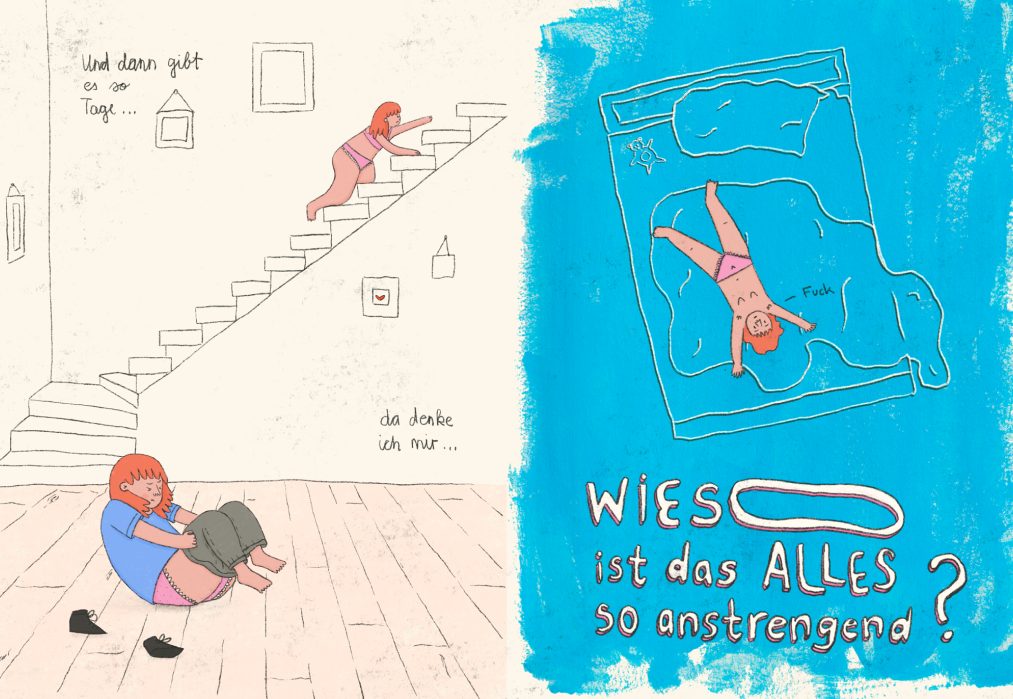 Und dann gibt
es so
Tage...
da denke
ich mir...
Fuck
WIESO
ist das ALLES
so anstrengend?